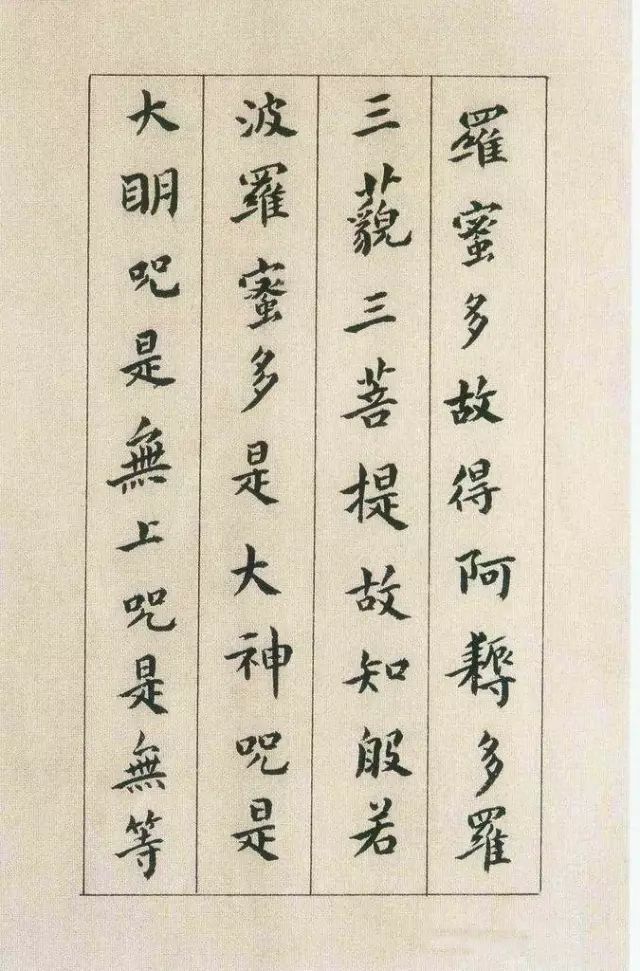 羅蜜多故得阿耨多羅
三藐三菩提故知般若
波羅蜜多是大神咒是
大明咒是無上咒是無等